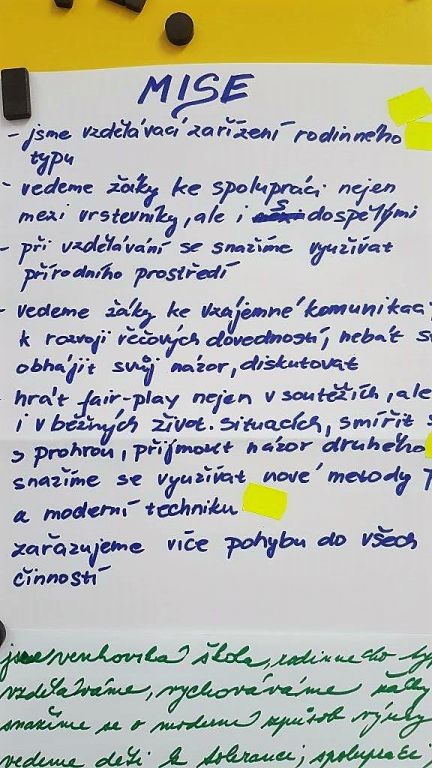 MISE
- jsme vzdělávací zařízení rodinného
typu
- vedeme žáky ke spolupráci nejen
mezi vrstevníky, ale i s dospělými
- při vzdělávání se snažíme využívat
přírodního prostředí
- vedeme žáky ke vzájemné komunikaci,
k rozvoji řečových dovedností, nebát s
obhájit svůj názor, diskutovat
hrát fair-play nejen v soutěžích, ale
i v běžných život. situacích, smířit s
s prohrou, přijmout názor druhého
snažíme se využívat nové metody
a moderní techniku
zařazujeme více pohybu do všech
činností
škola, rodinného ty
vzděláváme, vychováváme žáky
snažíme se o moderní způsob výuky
vedeme děti k toleranci, spolupráci